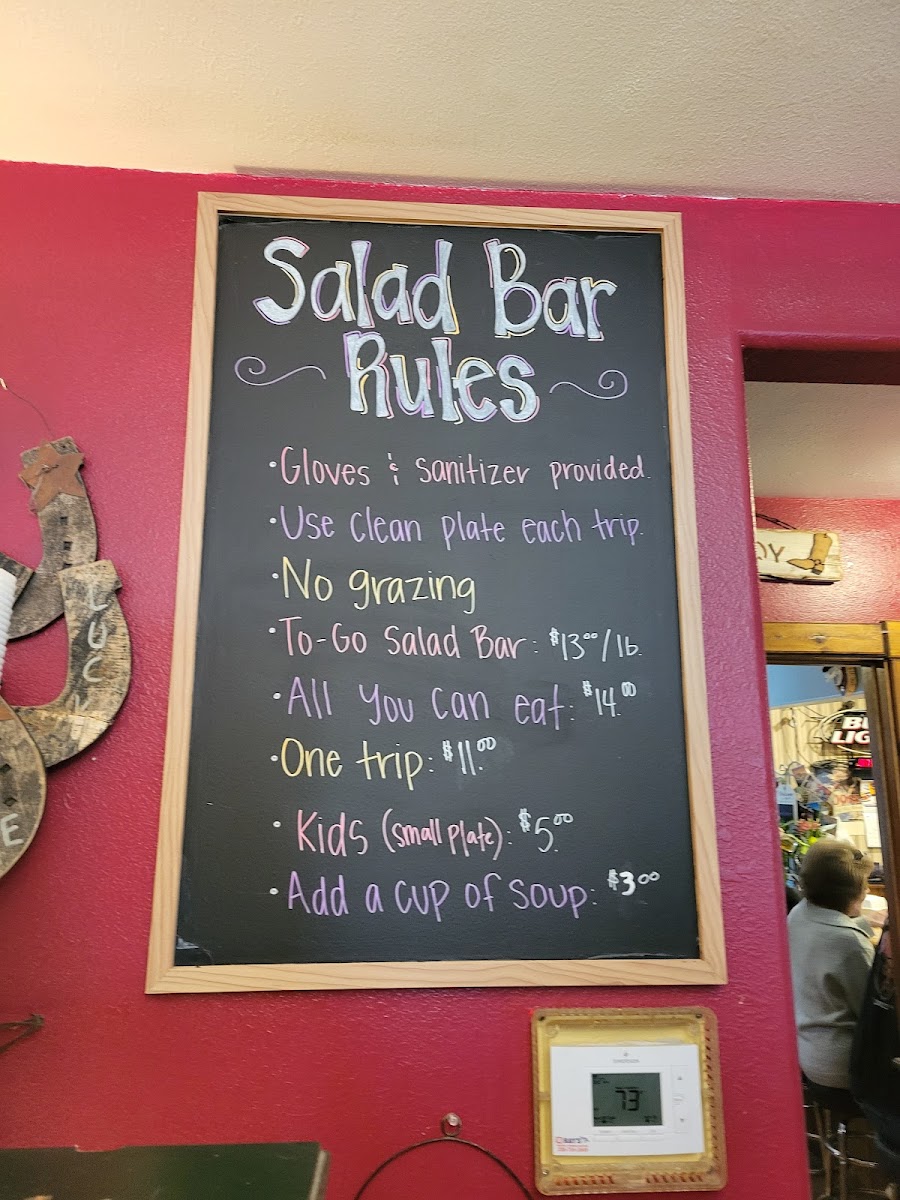 Salad Bar
Rules
·Gloves & sanitizer provided.
·Use clean plate each trip.
·No grazing
·To-Go Salad Bar: $13.00/lb.
·All you can eat: $14.00
·One trip: $11.00
·Kids (small plate): $5.00
·Add a cup of soup: $3.00
LUCK
E
OY
73